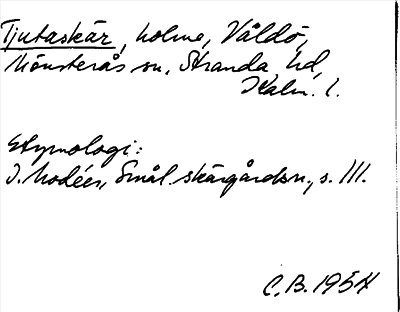 Tjutaskär, holme, Våldö,
Mönsterås sn, Stranda hd,
Kalm. l.
Etymologi:
I. Modéer, Smål. skärgårdsn., s. 111.
C.B. 1954